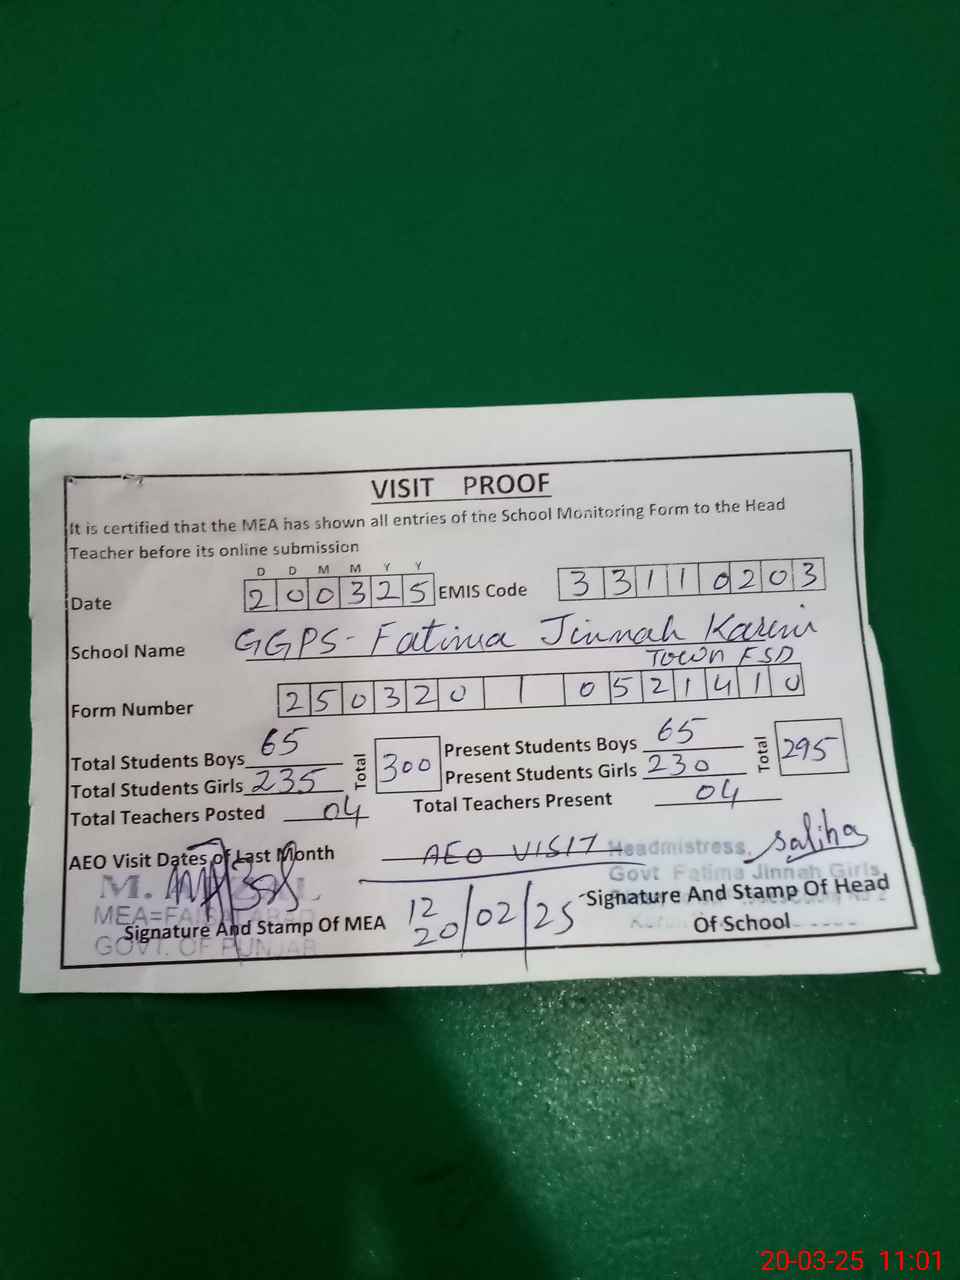 VISIT PROOF
It is certified that the MEA has shown all entries of the School Monitoring Form to the Head
Teacher before its online submission
D D M M Y Y
Date 200325 EMIS Code 33110203
School Name GGPS - Fatima Jinnah Karim
Town FSD
Form Number 250320 1 0521410
Total Students Boys 65 Total 300 Present Students Boys 65 Total 295
Total Students Girls 235 Present Students Girls 230
Total Teachers Posted 04 Total Teachers Present 04
AEO Visit Dates of Last Month AEO VISIT Headmistress, Saliha
M.
Govt Fatima Jinnah Girls
MEA=FAISALABAD
Signature And Stamp Of MEA 12 20/02/25 Signature And Stamp Of Head
Of School
GOVT. OF PUNJAB
20-03-25 11:01